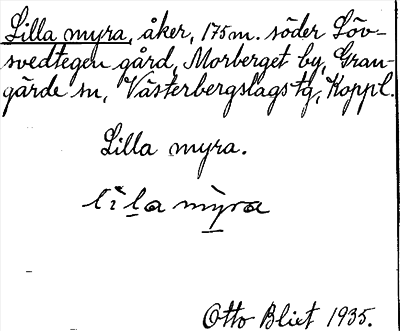 Lilla myra, åker, 175 m. söder Löv-
svedtegen gård, Morberget by, Gran-
gärde sn, Västerbergslags tg, Koppl.
Lilla myra.
lìl̠a mỳra
Otto Blixt 1935.